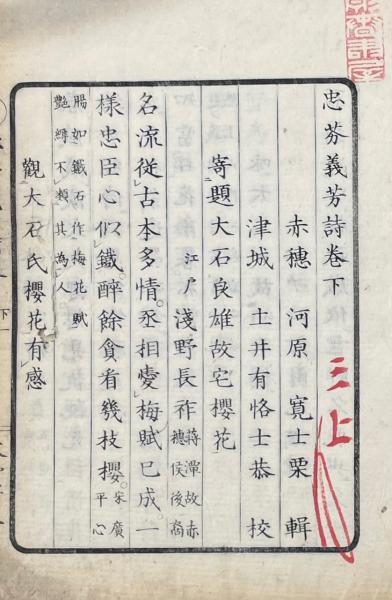 忠芬義芳詩卷下
赤穗 河原 寬士栗 輯
津城 土井有恪士恭 校
寄題大石良雄故宅櫻花
江戶 淺野長祚 蔣潭故赤穗侯後裔
名流從古本多情。丞相愛梅賦已成。一
樣忠臣心似鐵。醉餘貪看幾枝櫻。宋廣平心
腸如鐵石作梅花賦
艷縟不類其為人
觀大石氏櫻花有感
三上
下